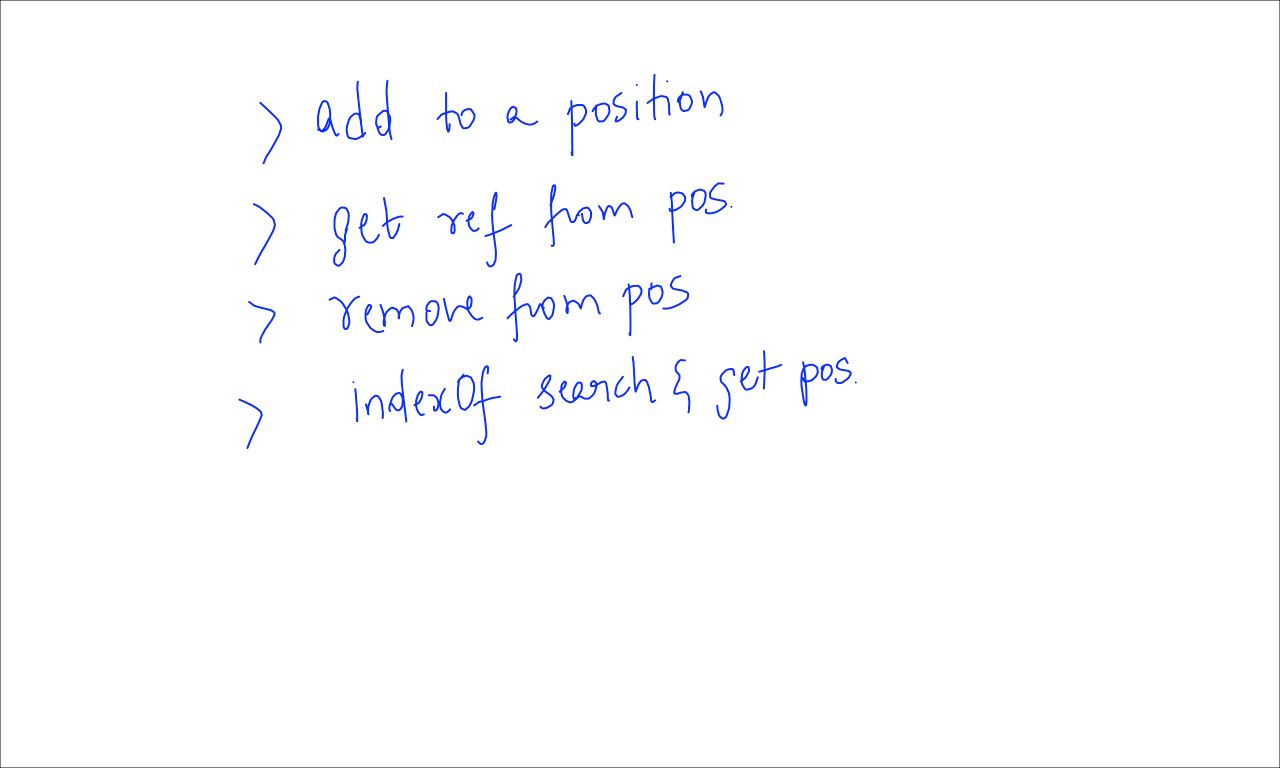 > add to a position
> get ref from pos.
> remove from pos
> indexOf search & get pos.